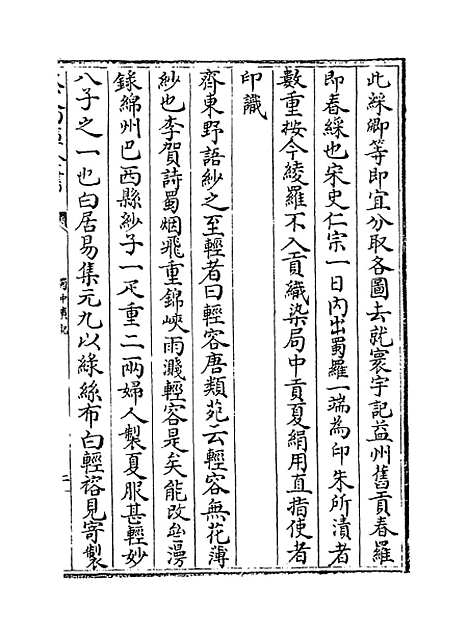 此綵卿等即宜分取各圖去就寰宇記益州舊貢春羅
即春綵也宋史仁宗一日內出蜀羅一端為印朱所漬者
數重按今綾羅不入貢織染局中貢夏絹用直指使者
印識
齊東野語紗之至輕者曰輕容唐類苑云輕容無花薄
紗也李賀詩蜀烟飛重錦峽雨濺輕容是矣能改齋漫
錄綿州巴西縣紗子一疋重二兩婦人製夏服甚輕妙
八子之一也白居易集元九以綠絲布白輕褣見寄製
蜀中廣記